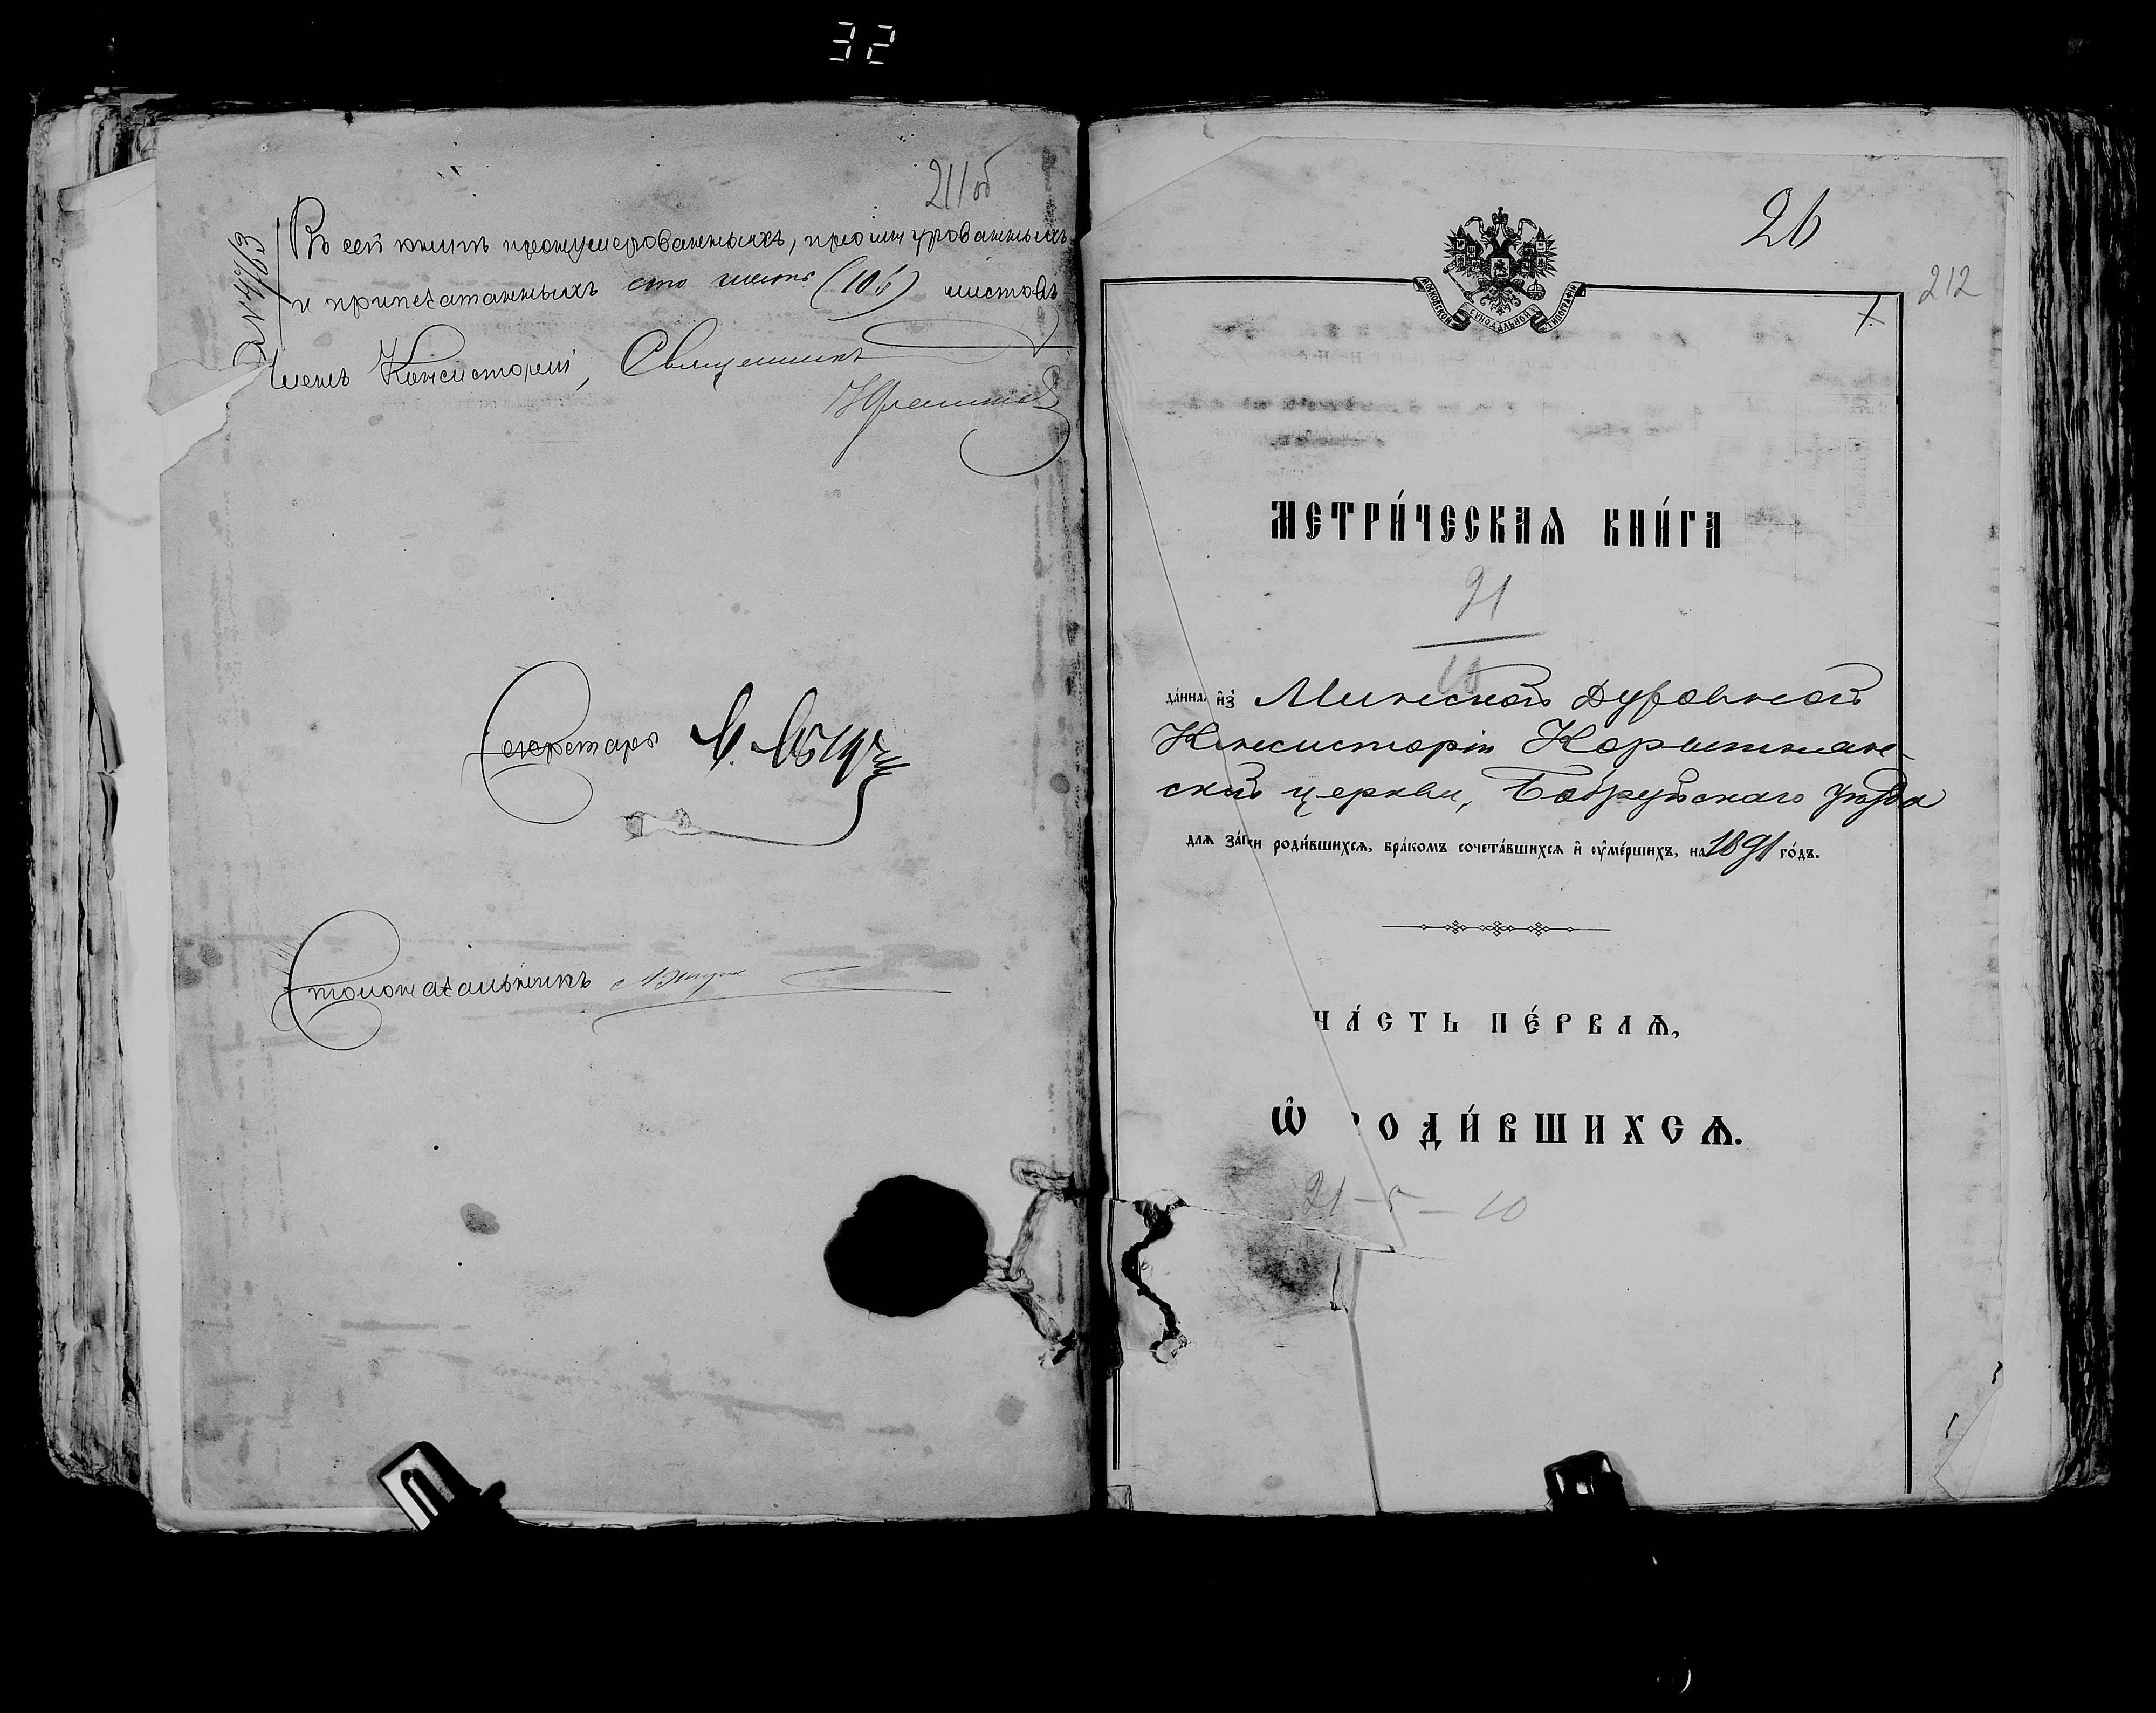 32
211об
№ 4763
Въ сей книгѣ пронумерованныхъ, прошнурованныхъ
и припечатанныхъ сто шесть (106) листовъ
Членъ Консисторіи, Священникъ
Секретарь
Столоначальникъ
26
212
МОСКОВСКОЙ СѴНОДАЛЬНОЙ ТИПОГРАФІИ
МЕТРИ́ЧЕСКАѦ КНИ́ГА
21
да́нна и҆зъ Минской Духовной
Консисторіи Корытнян-
ской церкви, Бобруйскаго уѣзда
длѧ за́ и роди́вшихсѧ, бра́комъ сочета́вшихсѧ и҆ ѹ҆ме́ршихъ, на 1891 го́дъ.
ЧА́СТЬ ПЕ́РВАѦ,
Ѡ҆ ОДИ́ВШИХСѦ.
21 – 5 – 10